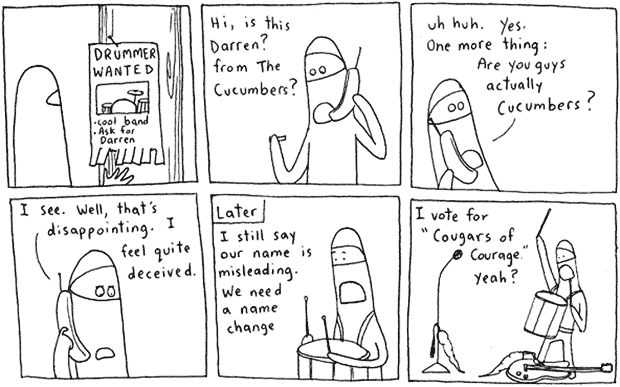 DRUMMER
WANTED
•cool band
•Ask for
Darren
Hi, is this
Darren?
from The
Cucumbers?
uh huh. Yes.
One more thing:
Are you guys
actually
Cucumbers?
I see. Well, that's
disappointing. I
feel quite
deceived.
Later
I still say
our name is
misleading.
We need
a name
change
I vote for
"Cougars of
Courage."
Yeah?